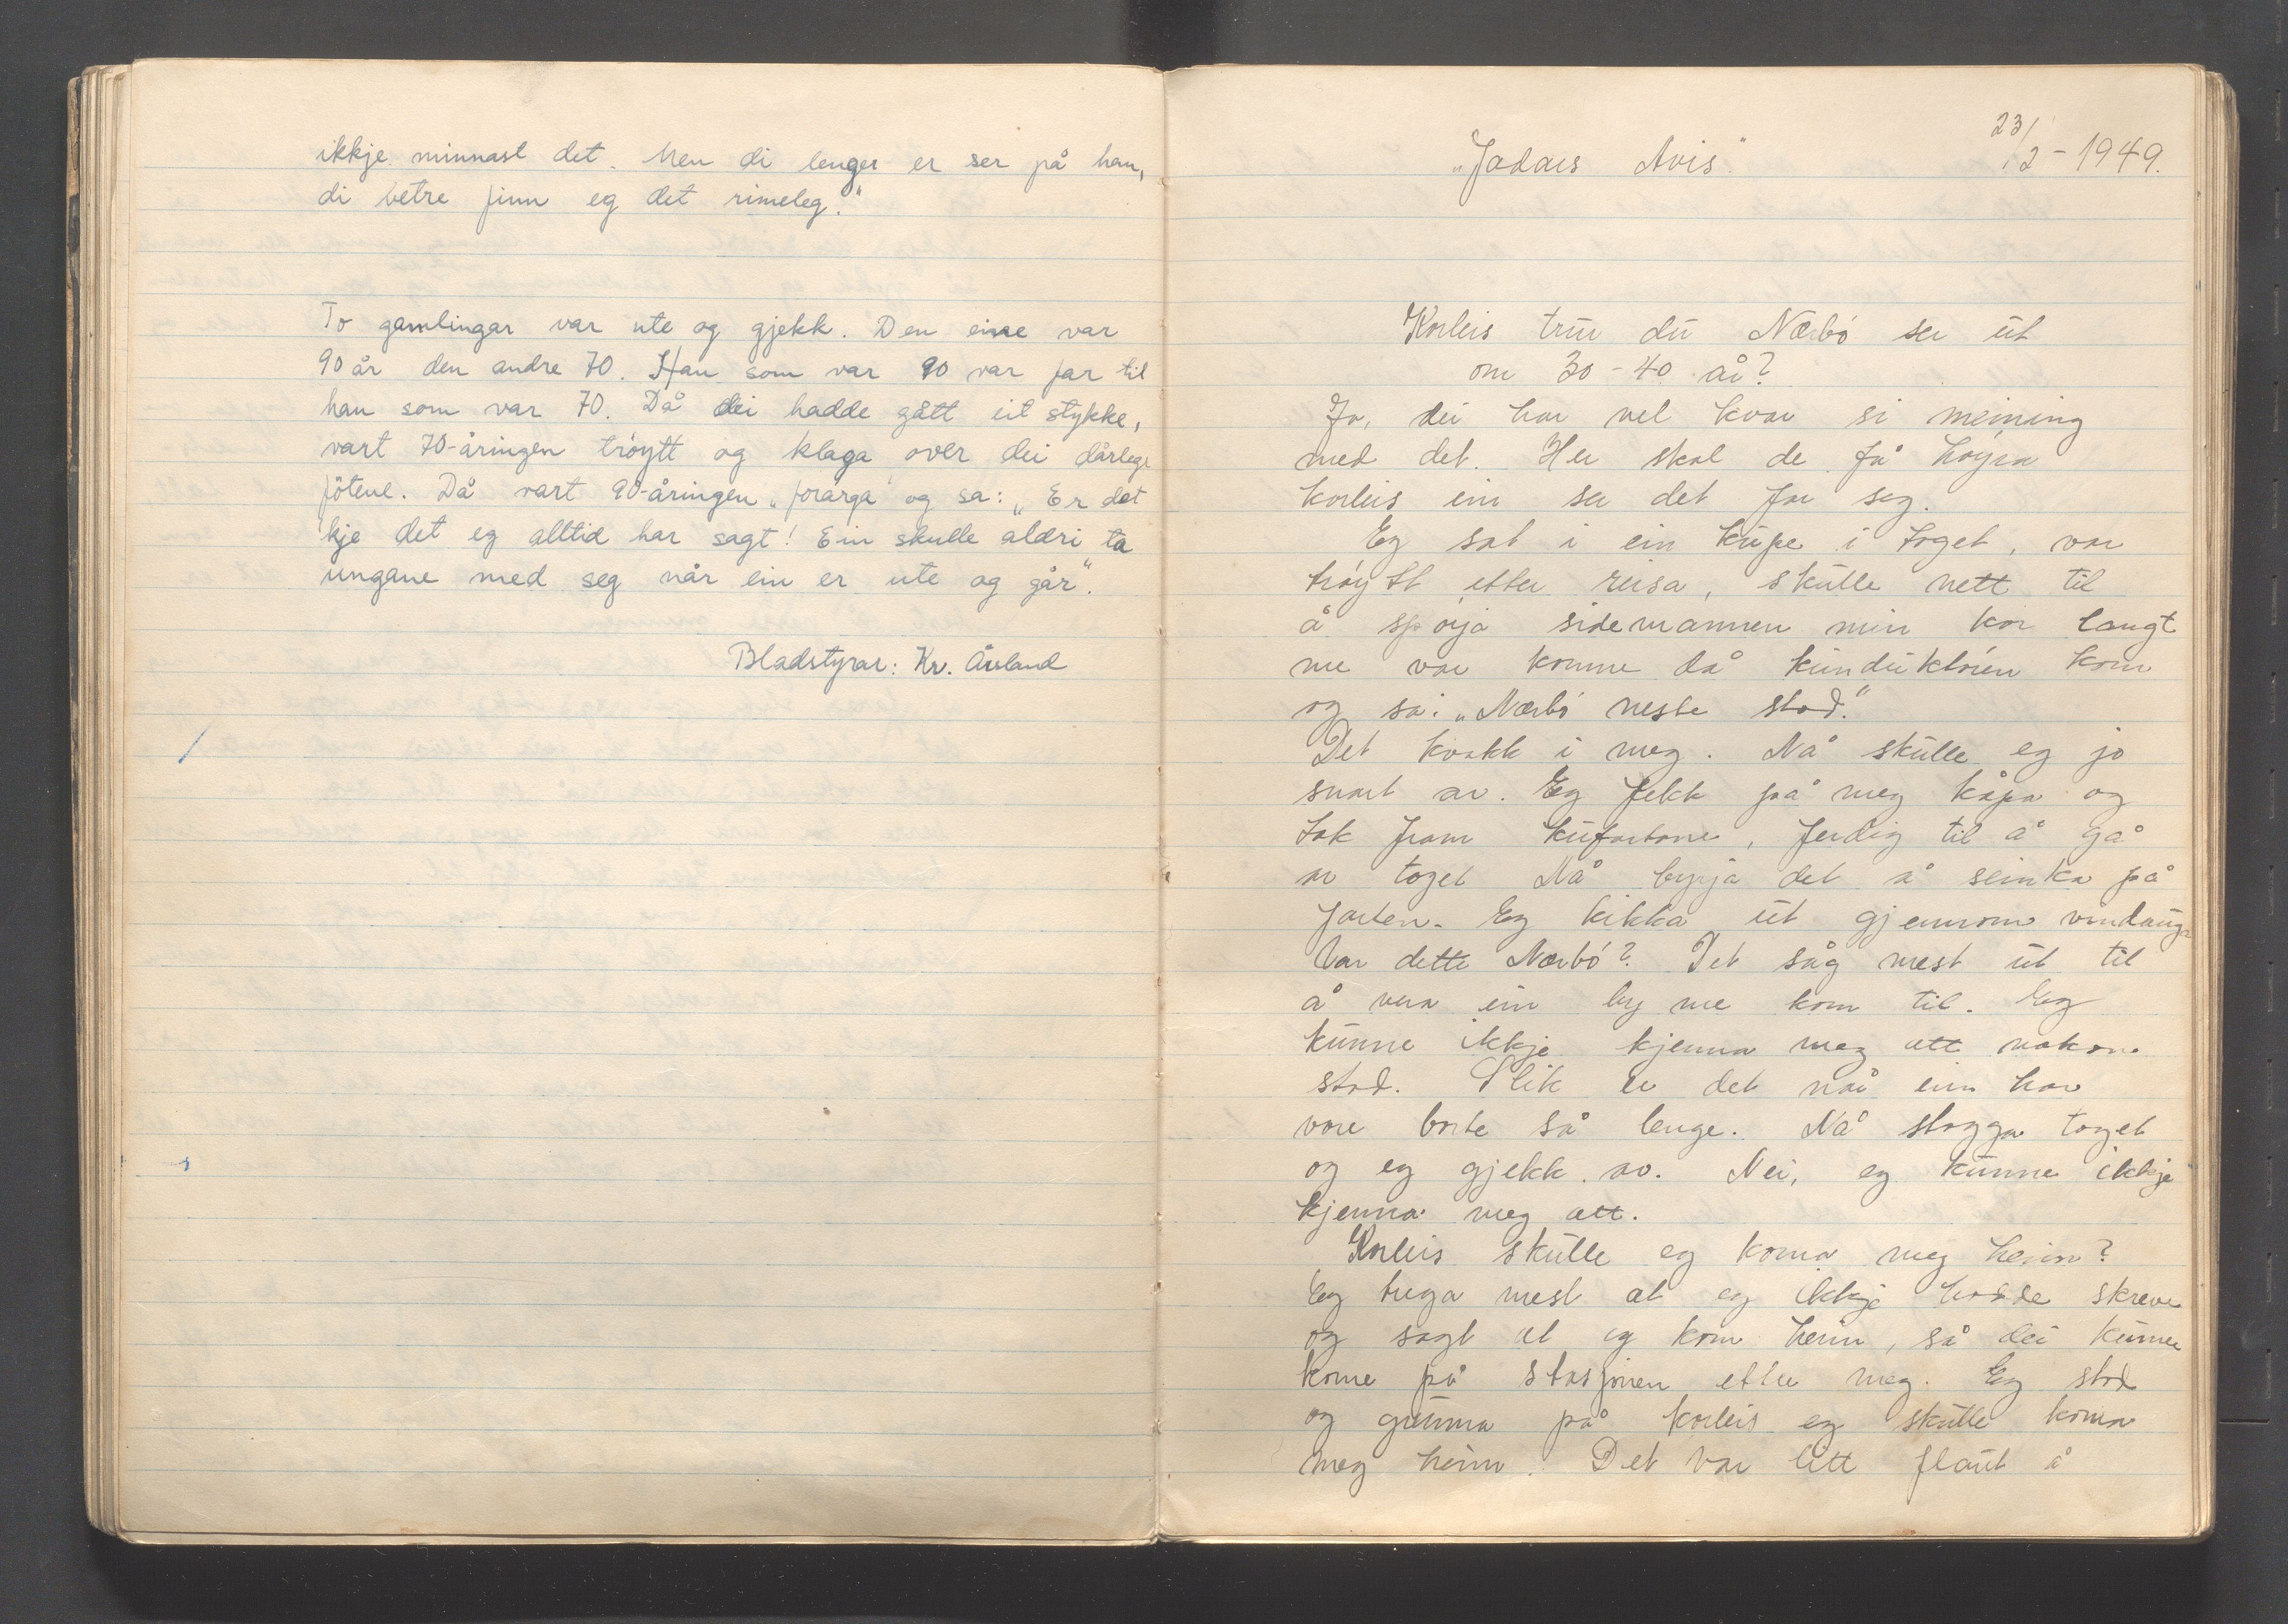 ikkje minnast det. Men di lenger er ser på han,
di betre finn eg det rimeleg."
To gamlingar var ute og gjekk. Den eine var
90 år den andre 70. Han som var 90 var far til
han som var 70. Då dei hadde gått eit stykke,
vart 70-åringen tröytt og klaga over dei dårlege
fötene. Då vart 90-åringen „forarga" og sa: „Er det
kje det eg alltid har sagt! Ein skulle aldri ta
ungane med seg når ein er ute og går".
Bladstyrar: Kr. Årsland
„Jadars Avis" 23/2-1949.
Korleis trur du Nærbö ser ut
om 30-40 år?
Ja, dei har vel kvar si meining
med det. Her skal de få höyra
korleis ein ser det for seg.
Eg sat i ein kupe i toget, var
tröytt etter reisa, skulle nett til
å spörja sidemannen min kor langt
me var komne då kunduktören kom
og sa: „Nærbö neste stad."
Det kvakk i meg. Nå skulle eg jo
snart av. Eg fekk på meg kåpa og
tok fram kufertane, ferdig til å gå
av toget Nå byrja det å seinka på
farten. Eg kikka ut gjennom vindauga
Var dette Nærbö? Det såg mest ut til
å vera ein by me kom til. Eg
kunne ikkje kjenna meg att nokon
stad. Slik er det når ein har
vore borte så lenge. Nå stogga toget
og eg gjekk av. Nei, eg kunne ikkje
kjenna meg att.
Korleis skulle eg koma meg heim?
Eg trega mest at eg ikkje hadde skreve
og sagt at eg kom heim, så dei kunne
kome på stasjonen etter meg. Eg stod
og grunna på korleis eg skulle koma
meg heim. Det var litt flaut å